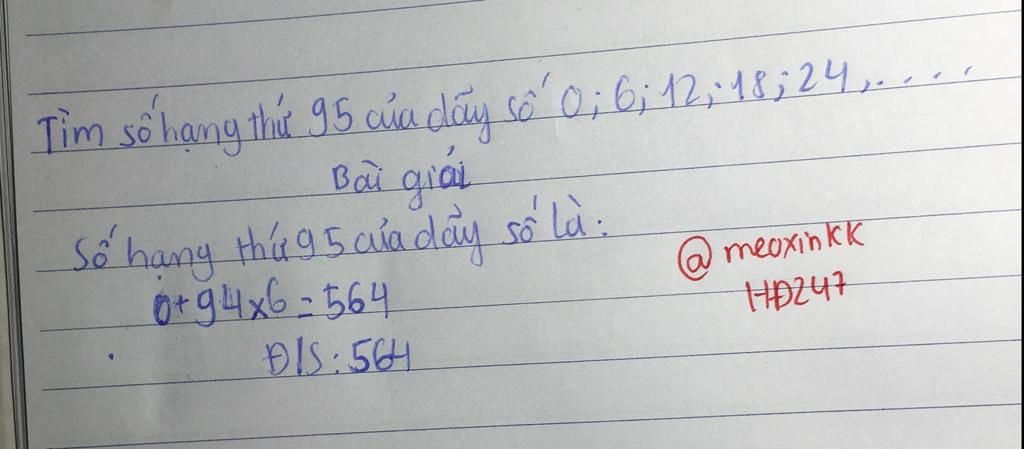 Tìm số hạng thứ 95 của dãy số 0; 6; 12; 18; 24, ....
Bài giải
Số hạng thứ 95 của dãy số là:
0+94x6=564
Đ/S: 564
@meoxinkk
HĐ247